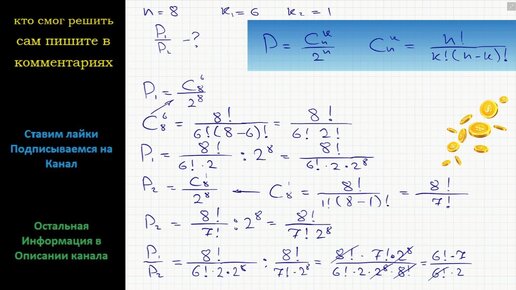 кто смог решить
сам пишите в
комментариях
Ставим лайки
Подписываемся на
Канал
Остальная
Информация в
Описании канала
n = 8   k₁ = 6   k₂ = 1
P₁/P₂ - ?
P = Cₙᵏ/2ⁿ   Cₙᵏ = n!/(k!(n-k)!)
P₁ = C₈⁶/2⁸
C₈⁶ = 8!/(6!(8-6)!) = 8!/(6! 2!)
P₁ = 8!/(6!·2) : 2⁸ = 8!/(6!·2·2⁸)
P₂ = C₈¹/2⁸ — C₈¹ = 8!/(1!(8-1)!) = 8!/7!
P₂ = 8!/7! : 2⁸ = 8!/(7! 2⁸)
P₁/P₂ = 8!/(6!·2·2⁸) : 8!/(7!·2⁸) = (8!·7!·2⁸)/(6!·2·2⁸·8!) = (6!·7)/(6!·2)